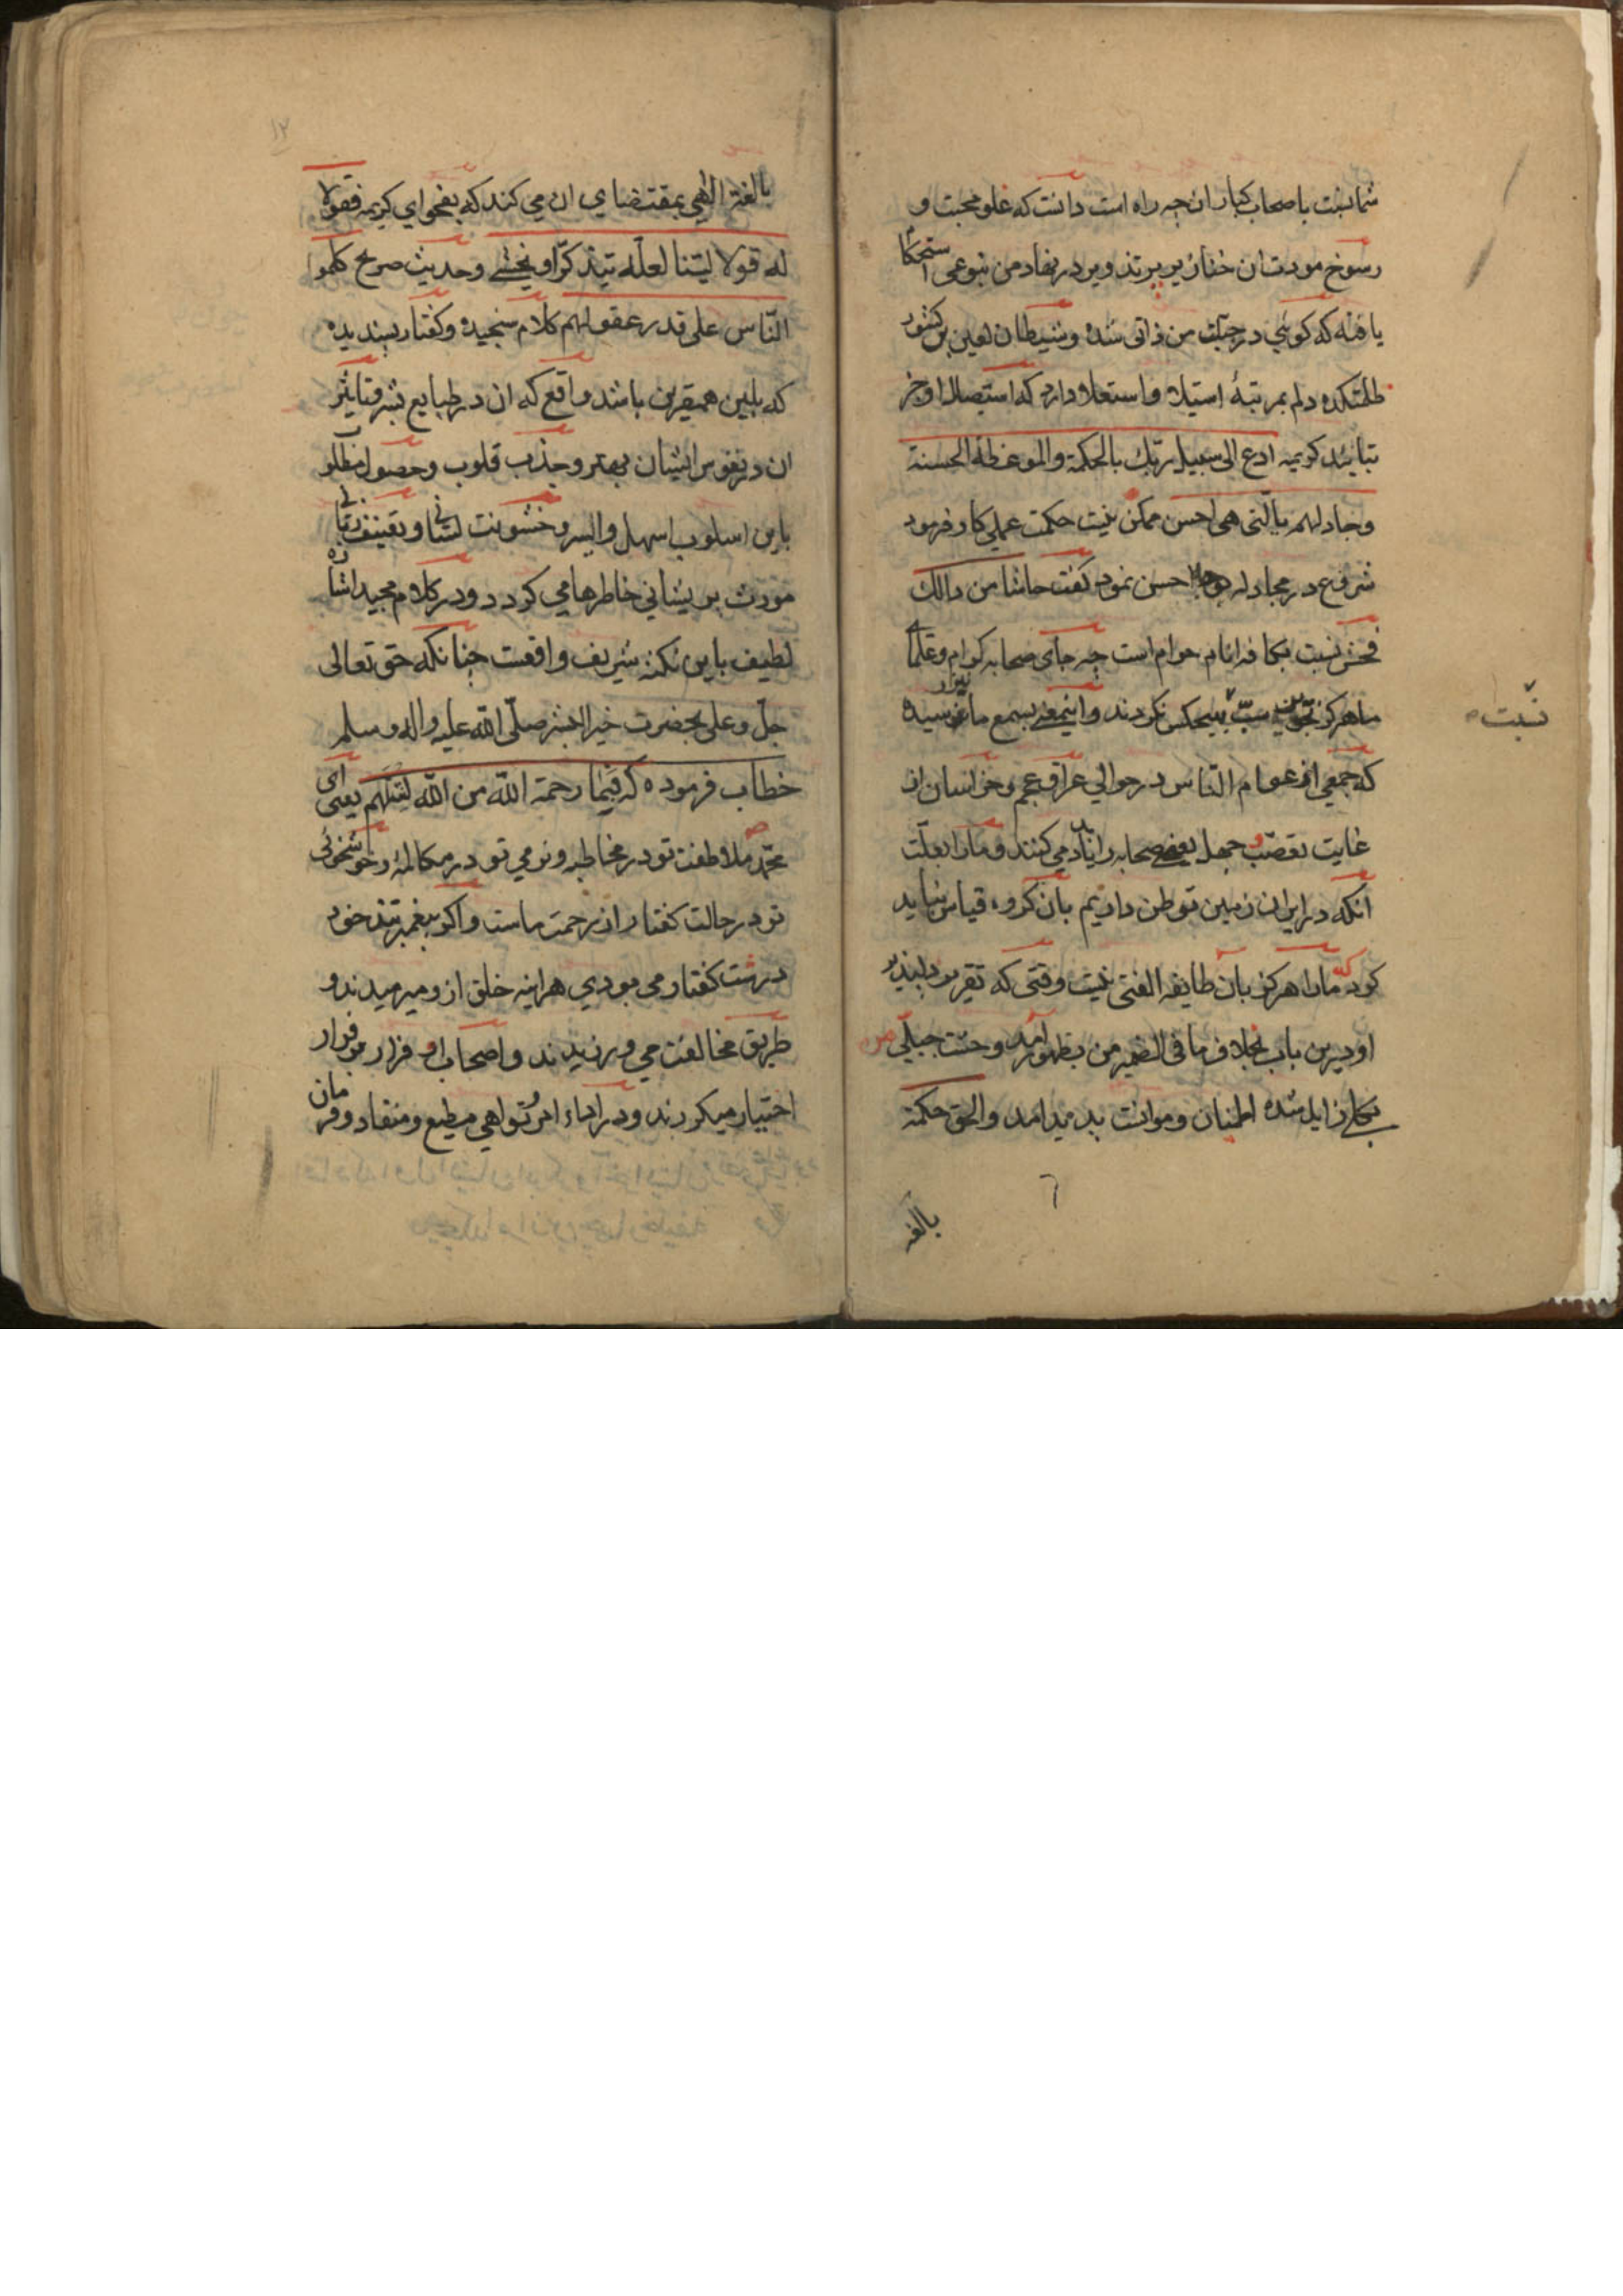 شمانسبت باصحاب کبار ان چه راه است دانست که غلو محبت و
رسوخ مودت ان خنازیر پرتذویر در نهاد من بنوعی استحکام
یافته که کوئی در جبلت من ذاتی شده و شیطان لعین بر کشور
ظلمتکده دلم بمرتبهٔ استیلا و استعلا دارد که استیصال او جز
بتائید کریمه ادع الی سبیل ربک بالحکمة والموعظة الحسنة
وجادلهم بالتی هی احسن ممکن نیست حکمت عملی کار فرمود
شروع در مجادله بوجه احسن نمود کفت حاشا من ذالک
فحش نسبت بکافه انام حرام است چه جای صحابه کرام و علما
ما هرکز تجویز سبّ بهیچکس نکردند و اینمعنی بسمع ما نیز رسیده
نسبت
که جمعی از عوام النّاس در حوالی عراق عجم و خراسان از
غایت تعصّب و جهل بعضی صحابه را یاد می کنند و ما را بعلّت
انکه در ایران زمین توطن داریم بان کروه قیاس نباید
کرد که ما را هرکز بان طایفه الفتی نیست وقتی که تقریر دلپذیر
او درین باب بخلاف ما فی الضمیر من بظهور آمد وحشت جبلّی من
بکلی زایل شده اطمنان و موانست پدید امد والحق حکمة
٦
بالغه
١٢
بالغة الهی بمقتضای ان می کند که بفحوای کریمه فقولا
له قولا لیّنا لعلّه یتذکّر او یخشی وحدیث صریح کلموا
النّاس علی قدر عقولهم کلام سنجیده و کفتار پسندیده
که بلین همقرین باشد واقع که ان در طبایع بشر و تاثیر
ان در نفوس ایشان بهتر و جذب قلوب و حصول مطلوب
باین اسلوب اسهل و ایسر و خشونت لسانی و تعنیف زبانی
مورث پریشانی خاطرها می کردد و در کلام مجید اشاره
لطیف باین نکته شریف واقعست چنانکه حق تعالی
جلّ وعلی بحضرت خیر البشر صلّی الله علیه واله وسلم
خطاب فرموده که فبما رحمة الله من الله لنتلهم یعنی ای
محمّد ملاطفت تو در مخاطبه و نرمی تو در مکالمه و خوشخوئی
تو در حالت کفتار از رحمت ماست و اکر پیغمبر تند خود
درشت کفتار می بودی هراینه خلق از و میرمیدند و
طریق مخالفت می ورزیدند و اصحاب او فرار بر قرار
اختیار میکردند و در اداء امر تو اهی مطیع و منقاد و فرمان